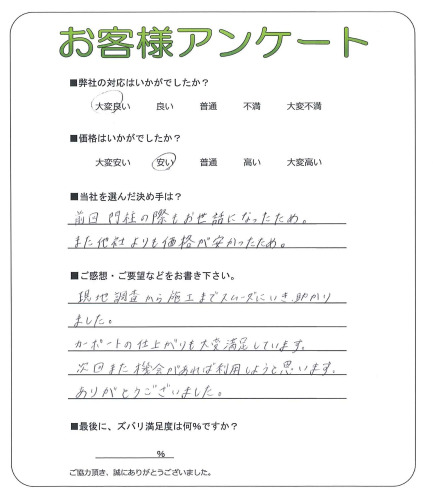 お客様アンケート
■弊社の対応はいかがでしたか?
大変良い 良い 普通 不満 大変不満
■価格はいかがでしたか?
大変安い 安い 普通 高い 大変高い
■当社を選んだ決め手は?
前回門柱の際もお世話になったため。
また他社よりも価格が安かったため。
■ご感想・ご要望などをお書き下さい。
現地調査から施工までスムーズにいき、助かり
ました。
カーポートの仕上がりも大変満足しています。
次回また機会があれば利用しようと思います。
ありがとうございました。
■最後に、ズバリ満足度は何%ですか?
%
ご協力頂き、誠にありがとうございました。